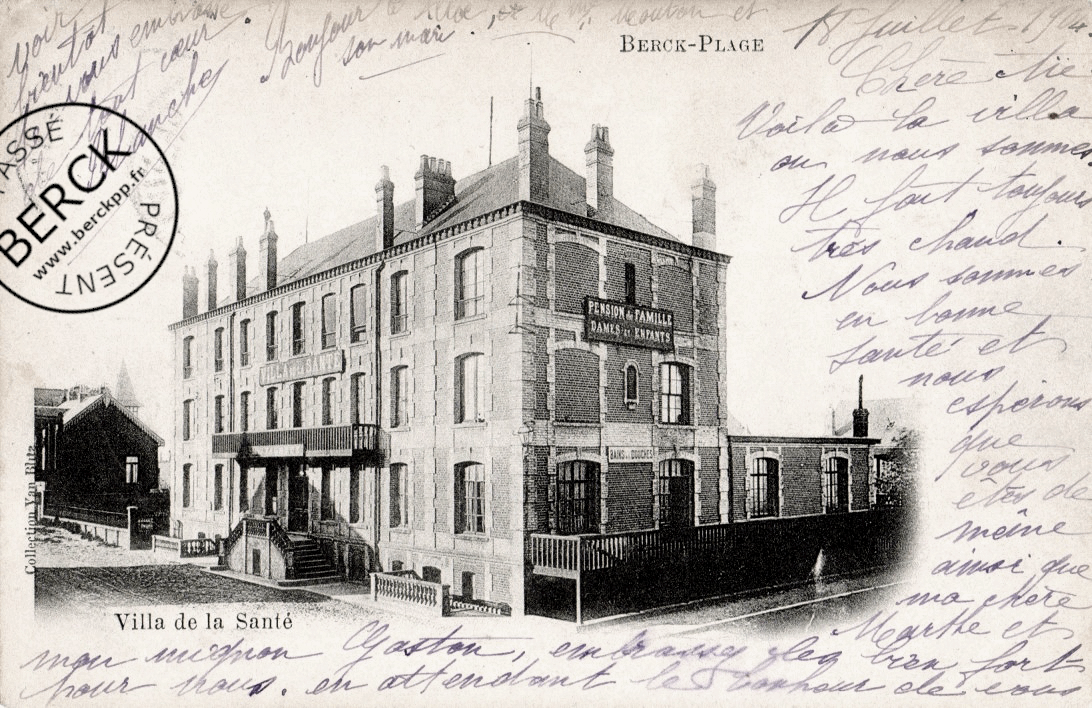 BERCK-PLAGE
18 Juillet
Chère
Voilà la villa
où nous sommes.
Il fait toujours
très chaud.
Nous sommes
en bonne
santé et
nous
espérons
que
vous
êtes de
même
ainsi que
ma chère
Marthe et
mon mignon Gaston, embrassez les bien fort
pour nous. en attendant le bonheur de vous
voir
bientôt
vous embrasse
tout cœur
Blanche
Bonjour à et
son mari
PASSÉ
BERCK
www.berckpp.fr
PRÉSENT
PENSION de FAMILLE
DAMES et ENFANTS
BAINS et DOUCHES
Collection Van Eliz
Villa de la Santé